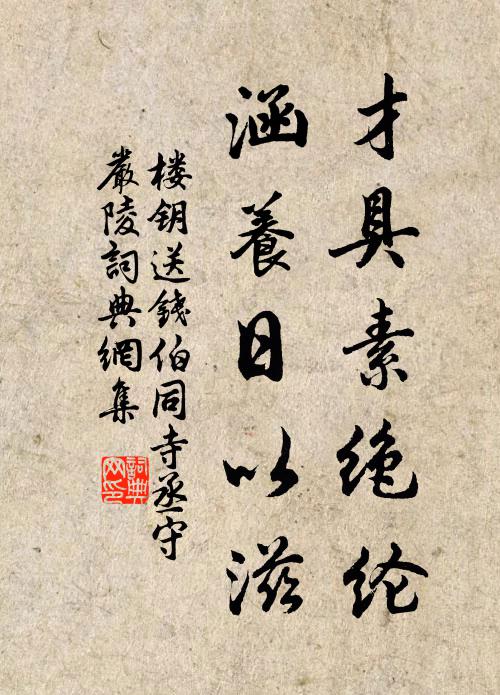 才具素绝纶
涵養日以滋
楼钥送錢伯同寺丞守
嚴陵詞典網集
詞典
网印